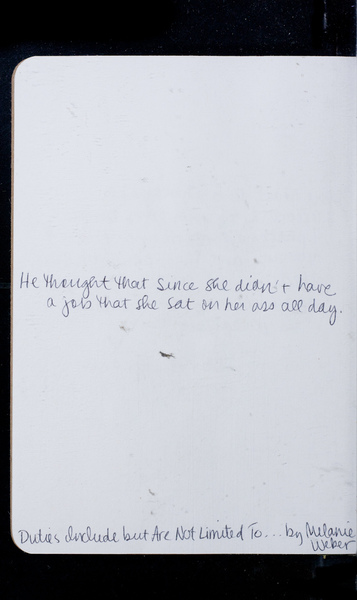 He thought that since she didn't have
a job that she sat on her ass all day.
Duties Include but Are Not Limited To... by Melanie
Weber